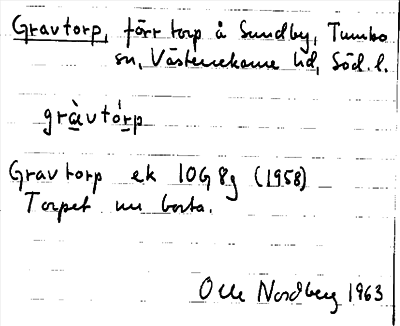 Gravtorp, förr torp å Sundby, Tumbo
sn, Västerrekarne hd, Söd. l.
gràvtórp
Gravtorp ek 10G 8g (1958)
Torpet nu borta.
Olle Nordberg 1963